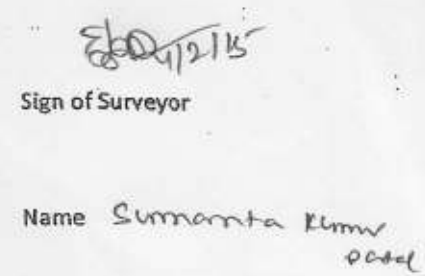 4/2/15
Sign of Surveyor
Name Sumanta Kumar
Patel